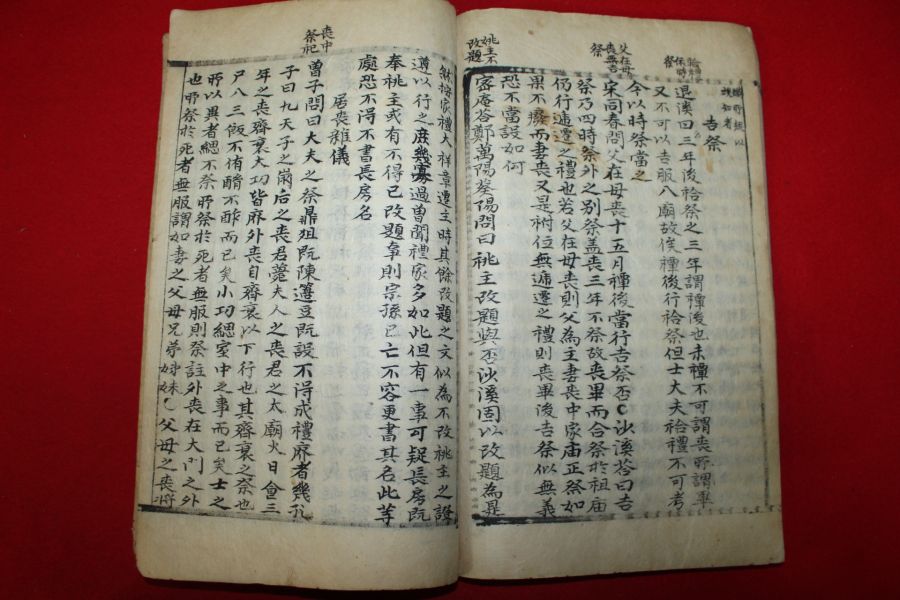 吉祭
退溪曰三年後祫祭之三年謂禫後也未禫不可謂喪畢
又不可以吉服入廟故俟禫後行祫祭但士大夫祫禮不可考
今以時祭當之
宋同春問父在母喪十五月禫後當行吉祭否沙溪答曰吉
祭乃四時祭外之別祭盖喪三年不祭故喪畢而合祭於祖廟
仍行遞遷之禮也若父在母喪則父為主妻喪中家庙正祭如
果不癈而妻喪又是祔位無遞遷之禮則喪畢後吉祭似無義
恐不當設如何
密庵答鄭萬陽葵陽問曰祧主改題與否沙溪固以改題為是
祭
父在母
喪無吉
祧主不
改題
然按家禮大祥章遷主時其餘改題之文似為不改祧主之證
遵以行之庶幾寡過曽聞禮家多如此但有一事可疑長房既
奉祧主或有不得已改題事則宗孫已亡不容更書其名此等
處恐不得不書長房名
居喪雜儀
曽子問曰大夫之祭鼎俎既陳籩豆既設不得成禮廢者幾孔
子曰九天子之崩后之喪君薨夫人之喪君之太廟火日食三
年之喪齊衰大功皆廢外喪自齊衰以下行也其齊衰之祭也
尸入三飯不侑酳不酢而已矣小功緦室中之事而已矣士之
所以異者緦不祭所祭於死者無服則祭註外喪在大门之外
也所祭於死者無服謂如妻之父母兄弟姊妹
父母之喪將
喪中
祭祀